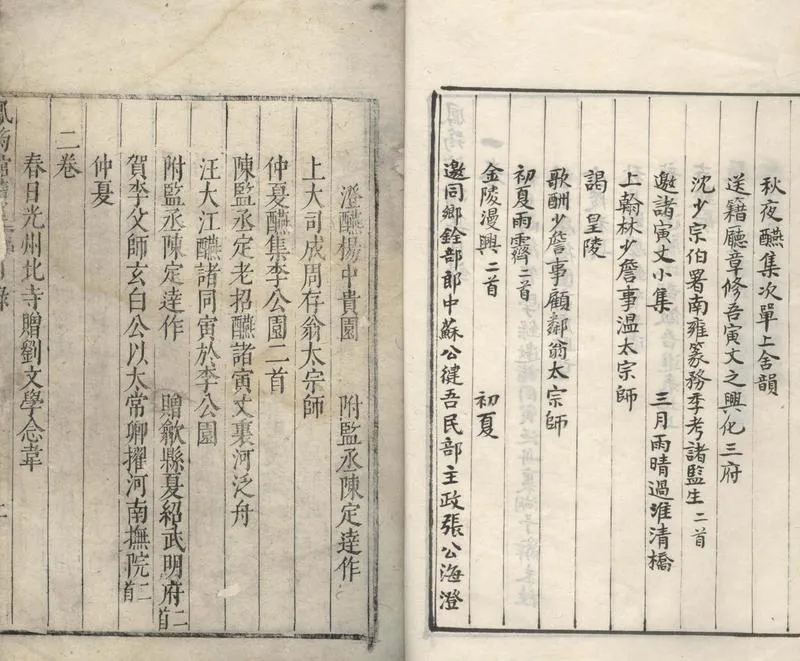 秋夜醼集次單上舍韻
送籍廳章修吾寅丈之興化三府
沈少宗伯署南雍篆務季考諸監生二首
邀諸寅丈小集　三月雨晴過淮清橋
上翰林少詹事温太宗師
謁皇陵
歌酬少詹事顧鄰翁太宗師
初夏雨霽二首
金陵漫興二首　初夏
邀同鄉銓部郎中蘇公健吾民部主政張公海澄
澄醼楊中貴園　附監丞陳定達作
上大司成周存翁太宗師
仲夏醼集李公園二首
陳監丞定老招醼諸寅丈裏河泛舟
汪大江醼諸同寅於李公園
附監丞陳定達作　贈歙縣夏紹武明府二首
賀李父師玄白公以太常卿擢河南撫院二首
仲夏
二卷
春日光州北寺贈劉文學念韋